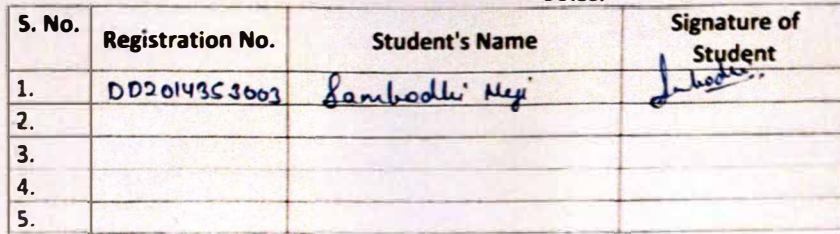 S. No. Registration No. Student's Name Signature of Student
1. DD2014353003 Sambodhi Negi
2.
3.
4.
5.